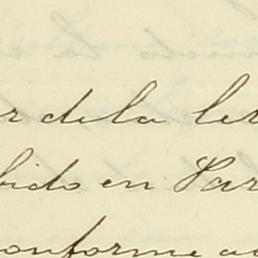 r de la le
bido en Par
conforme a